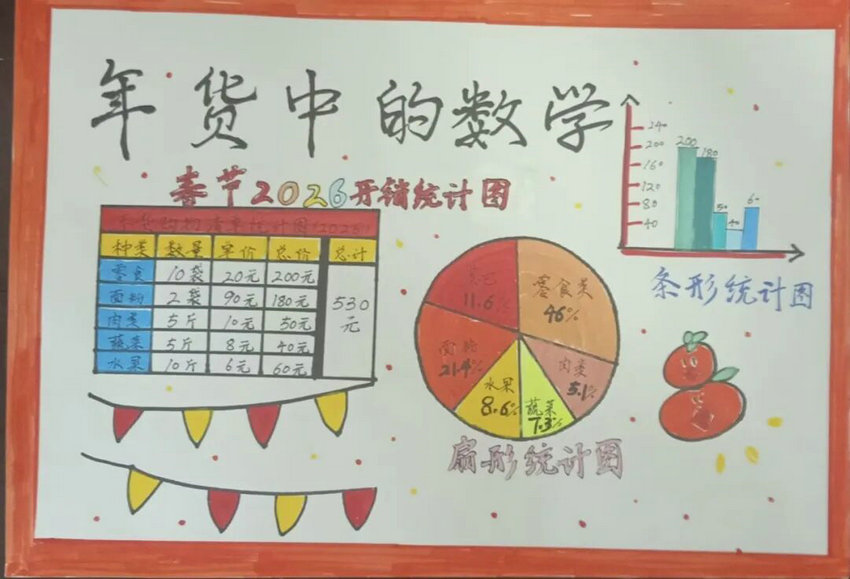 年货中的数学
春节2026开销统计图
年货购物清单统计图(2026)
种类 数量 单价 总价 总计
零食 10袋 20元 200元
面粉 2袋 90元 180元
肉类 5斤 10元 50元
蔬菜 5斤 8元 40元
水果 10斤 6元 60元
530元
11.6%
零食类
46%
面粉
21.4%
水果
8.6%
蔬菜
7.3%
肉类
5.1%
扇形统计图
240
200
160
120
80
40
200
180
50
40
60
条形统计图